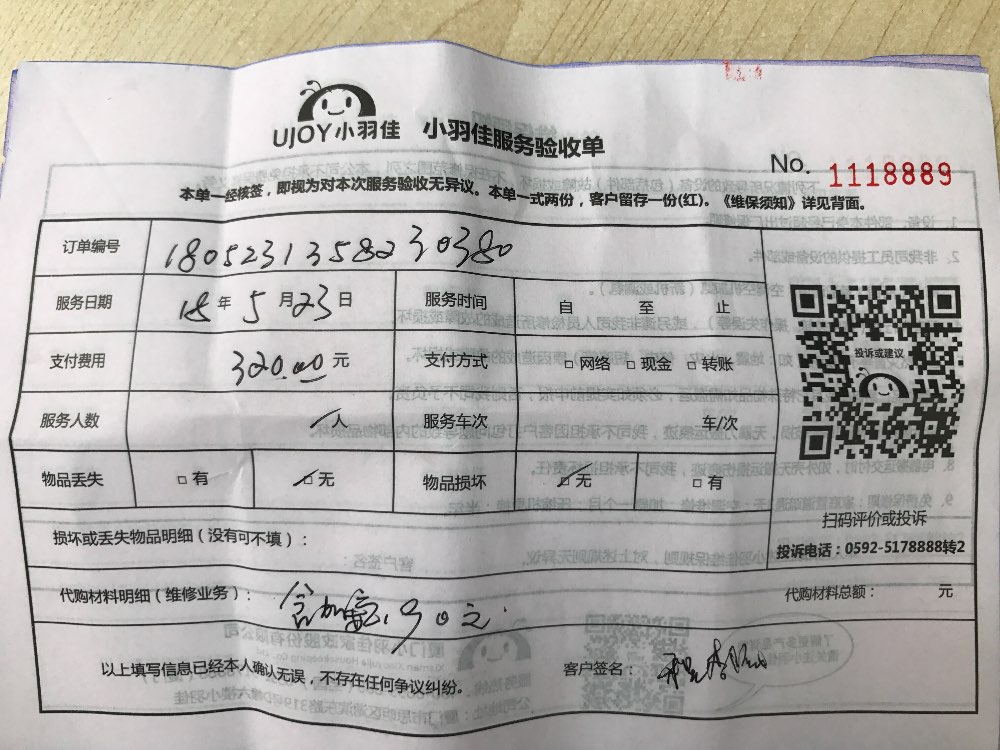 UJOY小羽佳 小羽佳服务验收单
No. 1118889
本单一经核签，即视为对本次服务验收无异议。本单一式两份，客户留存一份(红)。《维保须知》详见背面。
订单编号 1805231358230380
服务日期 18年5月23日 服务时间 自 至 止
支付费用 320.00元 支付方式 □网络 □现金 □转账
投诉或建议
服务人数 人 服务车次 车/次
物品丢失 □有 □无 物品损坏 □无 □有
扫码评价或投诉
投诉电话：0592-5178888转2
损坏或丢失物品明细（没有可不填）：
代购材料明细（维修业务）： 含加氟190元 代购材料总额： 元
以上填写信息已经本人确认无误，不存在任何争议纠纷。 客户签名：